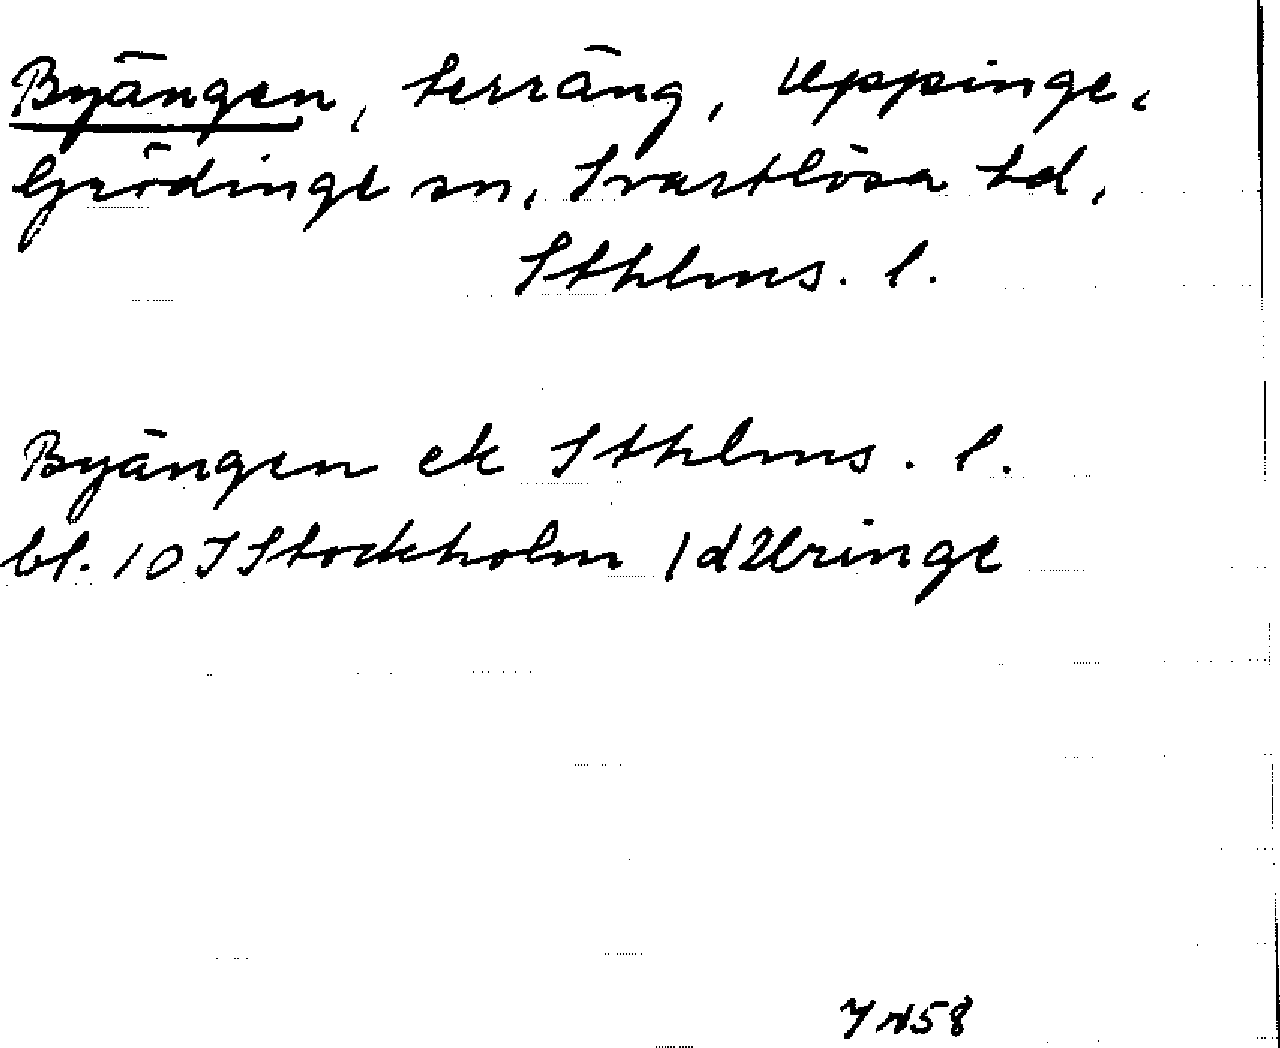 Byängen, terräng, Uppinge,
Grödinge sn, Svartlösa td,
Sthlms. l.
Byängen ek Sthlms. l.
bl. 10 I Stockholm 1d Uringe